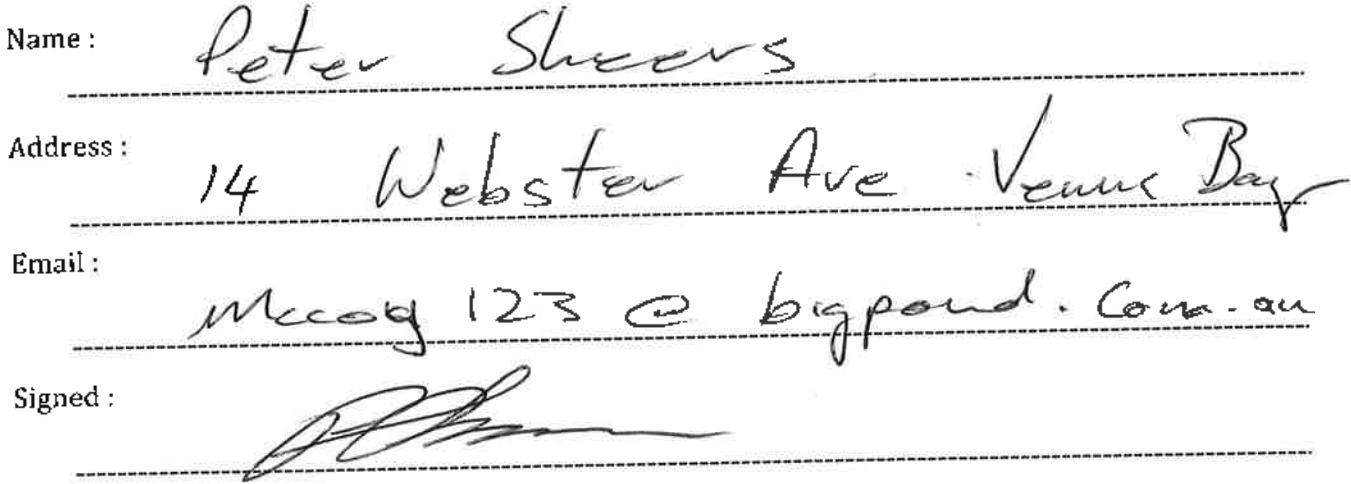 Name :
Peter Sheers
Address :
14 Webster Ave Venus Bay
Email :
123 @ bigpond.com.au
Signed :